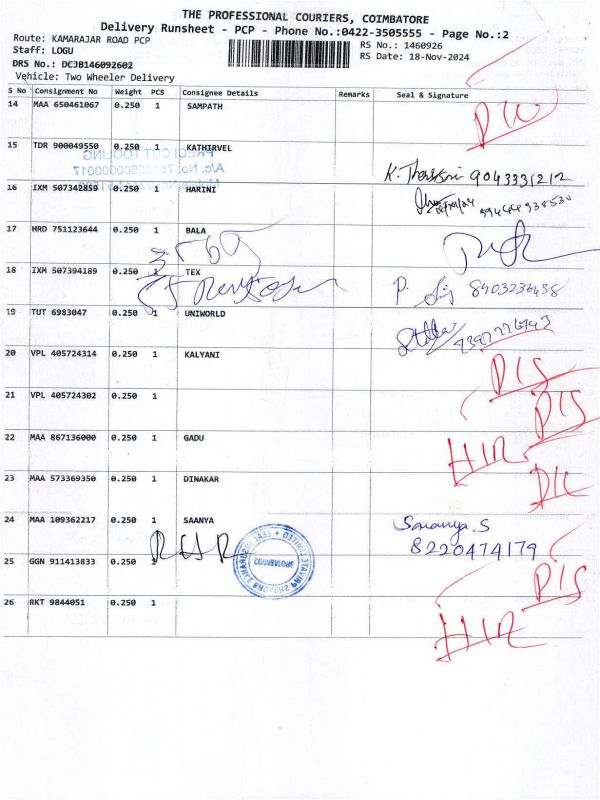 THE PROFESSIONAL COURIERS, COIMBATORE
Delivery Runsheet - PCP - Phone No.:0422-3505555 - Page No.:2
Route: KAMARAJAR ROAD PCP
RS No.: 1460926
Staff: LOGU
RS Date: 18-Nov-2024
DRS No.: DCJB146092602
Vehicle: Two Wheeler Delivery
S No Consignment No Weight PCS Consignee Details Remarks Seal & Signature
14 MAA 650461067 0.250 1 SAMPATH
15 TDR 900049550 0.250 1 KATHIRVEL
PRECI CUT TOOLING
K. 9043331212
16 IXM 507342859 0.250 1 HARINI
17 HRD 751123644 0.250 1 BALA
3569
18 IXM 507394189 0.250 1 TEX
P. 8903236498
19 TUT 6983047 0.250 1 UNIWORLD
20 VPL 405724314 0.250 1 KALYANI
DIS
21 VPL 405724302 0.250 1
DIS
22 MAA 867136000 0.250 1 GADU
HIR
23 MAA 573369350 0.250 1 DINAKAR
24 MAA 109362217 0.250 1 SAANYA
Saranya.S
8220474179
25 GGN 911413833 0.250 1
COIMBATORE
DIS
26 RKT 9844051 0.250 1
HIR